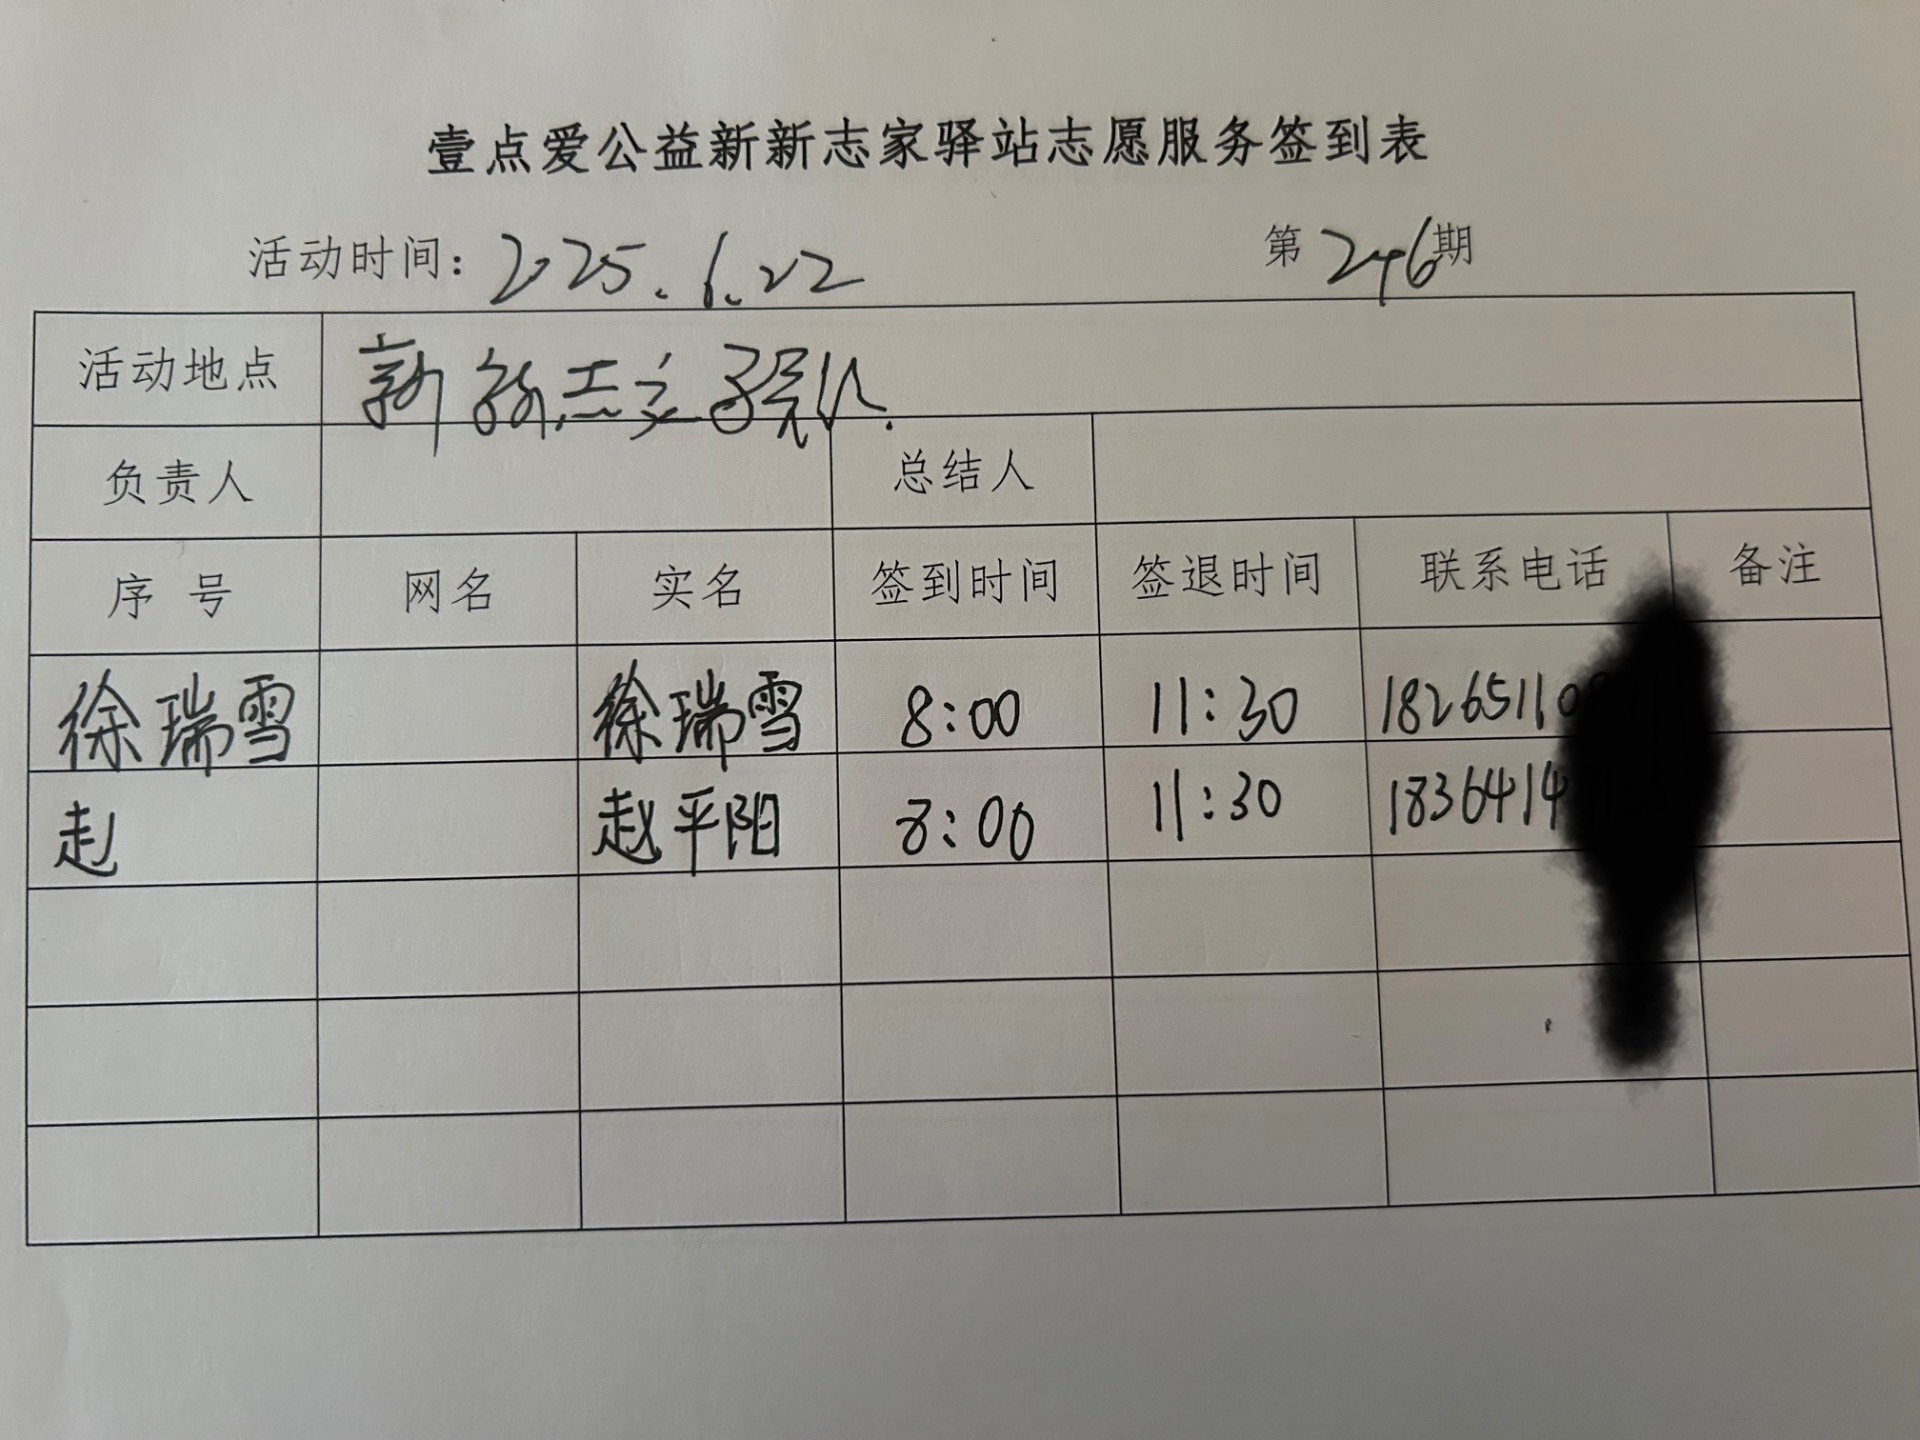 壹点爱公益新新志家驿站志愿服务签到表
活动时间：2025.6.22 第246期
活动地点 新新志
负责人 总结人
序号 网名 实名 签到时间 签退时间 联系电话 备注
徐瑞雪 徐瑞雪 8:00 11:30 18265110
赵 赵平阳 8:00 11:30 1836414